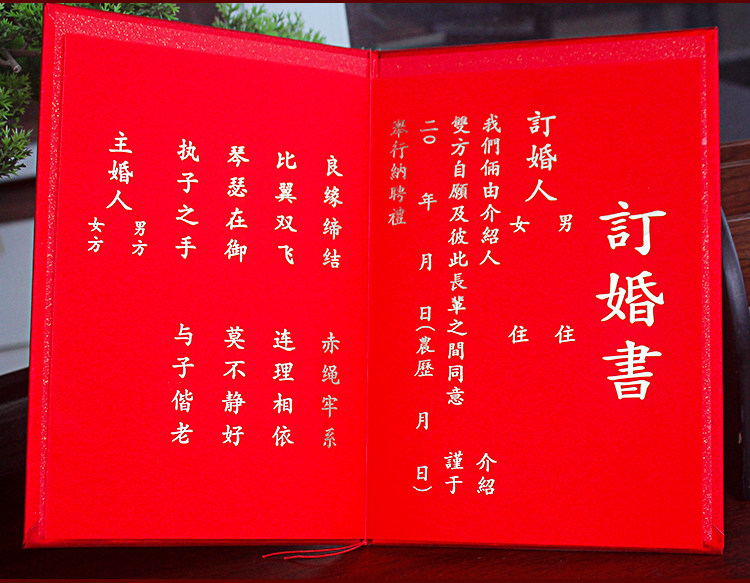 訂婚書
訂婚人 男 住
女 住
我們倆由介紹人 介紹
雙方自願及彼此長輩之間同意 謹于
二〇 年 月 日(農歷 月 日)
舉行納聘禮
良缘缔结 赤绳牢系
比翼双飞 连理相依
琴瑟在御 莫不静好
执子之手 与子偕老
主婚人 男方
女方